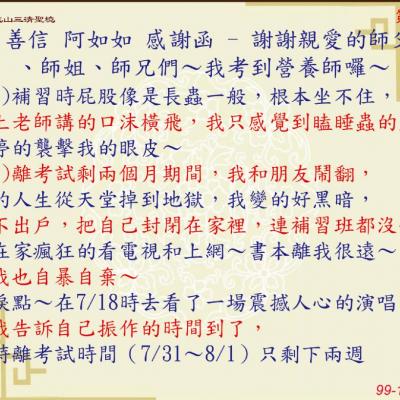 山三清聖境
善信 阿如如 感謝函 - 謝謝親愛的師父
、師姐、師兄們～我考到營養師囉～
)補習時屁股像是長蟲一般，根本坐不住，
上老師講的口沫橫飛，我只感覺到瞌睡蟲的
停的襲擊我的眼皮～
)離考試剩兩個月期間，我和朋友鬧翻，
的人生從天堂掉到地獄，我變的好黑暗，
不出戶，把自己封閉在家裡，連補習班都沒
在家瘋狂的看電視和上網～書本離我很遠～
我也自暴自棄～
淚點～在7/18時去看了一場震撼人心的演唱
我告訴自己振作的時間到了，
時離考試時間（7/31～8/1）只剩下兩週
99-1